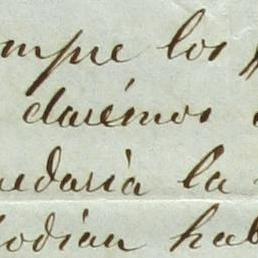 mpre los
daremos
edaria la
odian hab